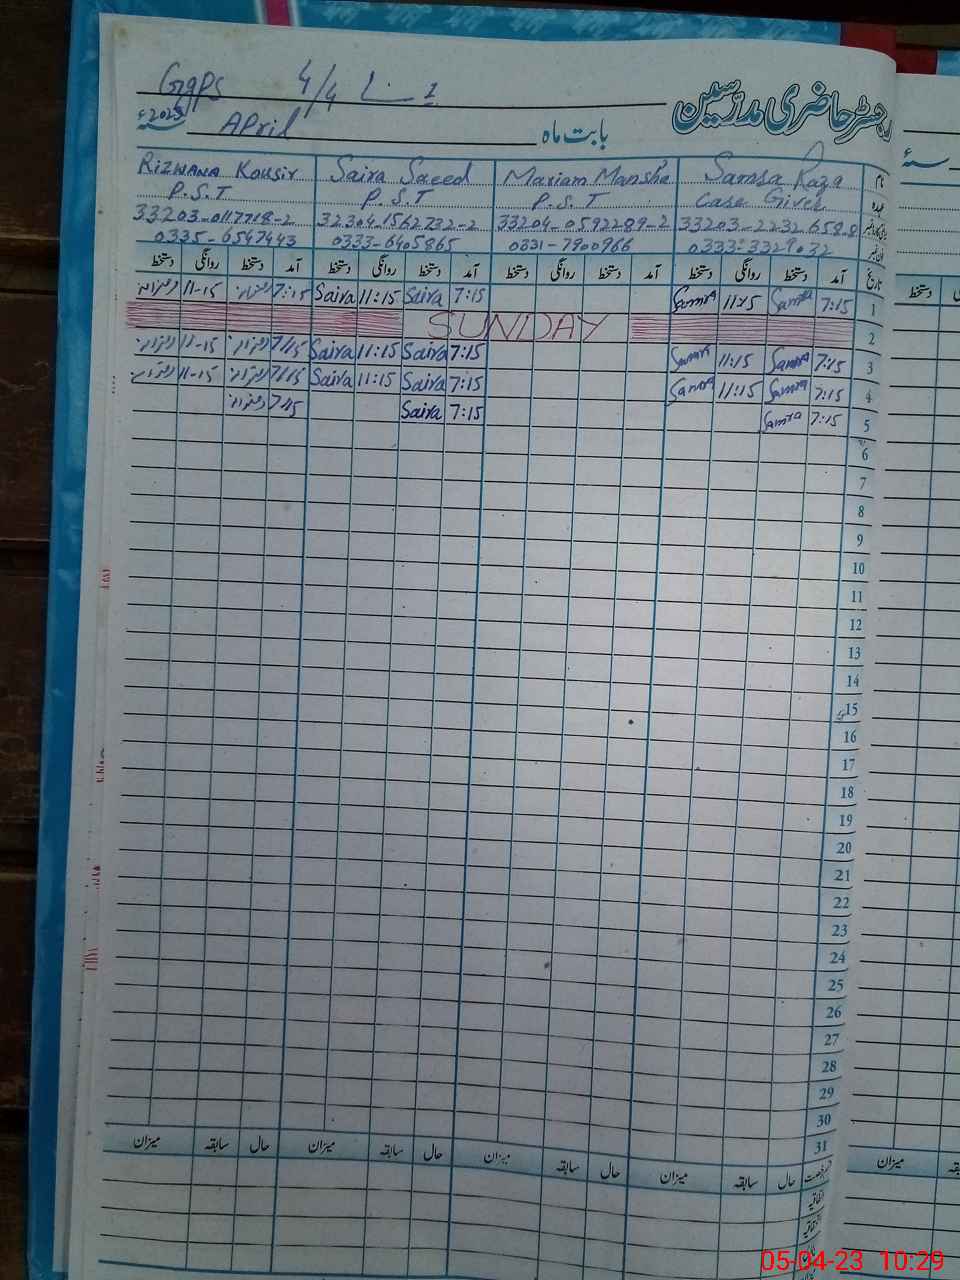 GGPS 4/4
رجسٹر حاضری مدرسین
2023ء April بابت ماہ
Rizwana Kousir Saira Saeed Mariam Mansha Samra Raza نام
P.S.T P.S.T P.S.T Care Giver عہدہ
33203-0117718-2 32304-1562732-2 33204-0592289-2 33203-2232658-8
0335-6547443 0333-6405865 0331-7900966 0333-3329032
دستخط روانگی دستخط آمد دستخط روانگی دستخط آمد دستخط روانگی دستخط آمد دستخط روانگی دستخط آمد تاریخ
11-15 7:15 Saira 11:15 Saira 7:15 Samra 11:15 Samra 7:15 1
SUNDAY 2
11-15 7:15 Saira 11:15 Saira 7:15 Samra 11:15 Samra 7:15 3
11-15 7:15 Saira 11:15 Saira 7:15 Samra 11:15 Samra 7:15 4
7:15 Saira 7:15 Samra 7:15 5
6
7
8
9
10
11
12
13
14
15
16
17
18
19
20
21
22
23
24
25
26
27
28
29
30
31
میزان سابقہ حال میزان سابقہ حال میزان سابقہ حال میزان سابقہ حال
اتفاقیہ
دستخط
میزان
05-04-23 10:29